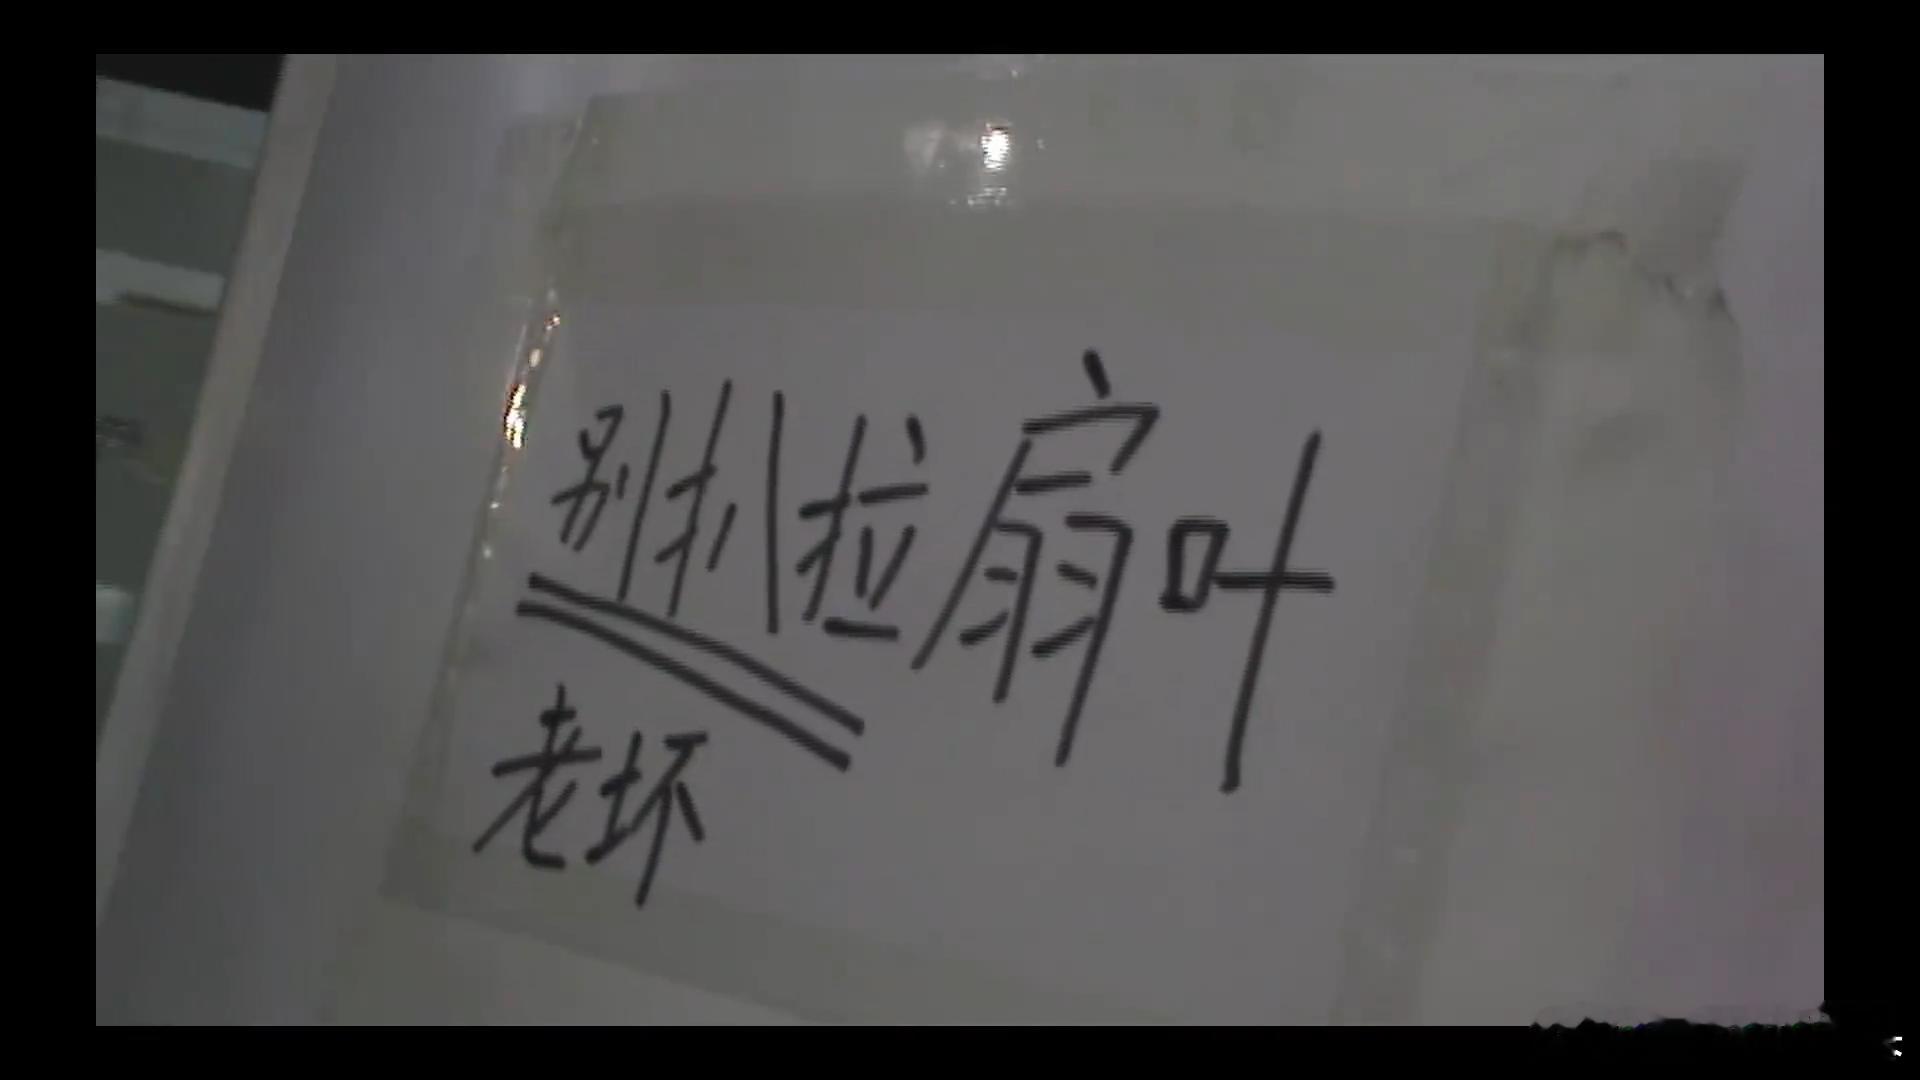 别扒拉扇叶
老坏